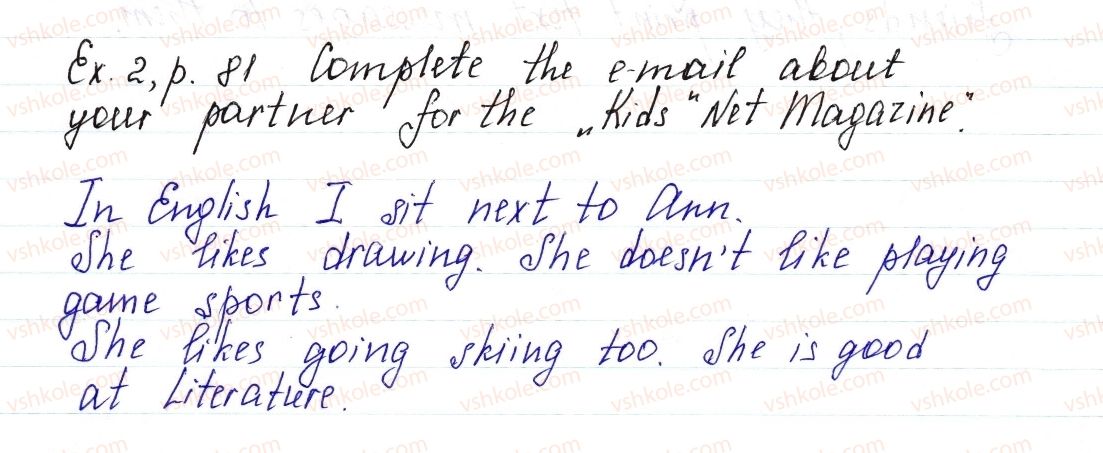 Ex. 2, p. 81 Complete the e-mail about
your partner for the „Kids" Net Magazine".
In English I sit next to Ann.
She likes drawing. She doesn't like playing
game sports.
She likes going skiing too. She is good
at Literature.
vshkole.com